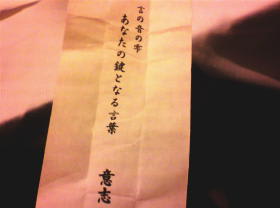 言の音の雫
あなたの鍵となる言葉
意志